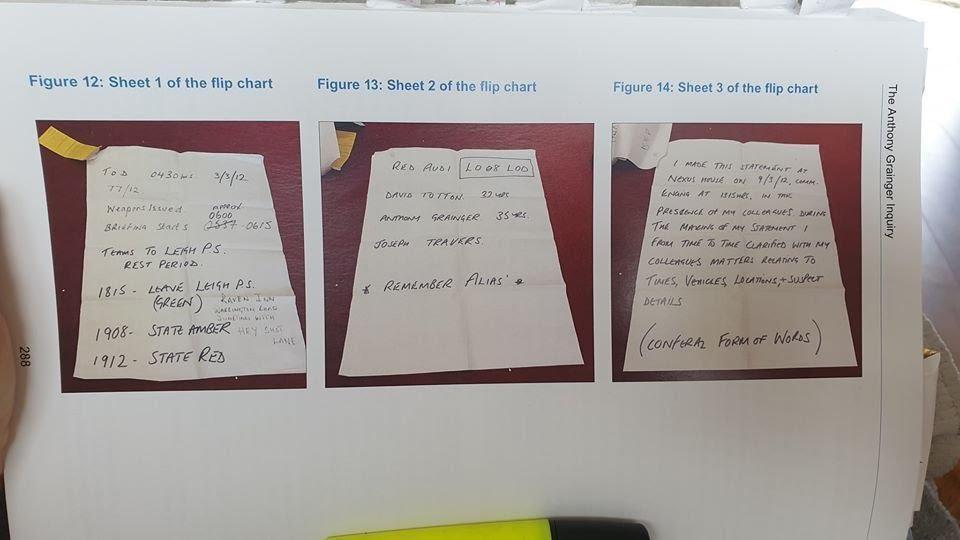 The Anthony Grainger Inquiry
Figure 12: Sheet 1 of the flip chart
T.O.D 0430HRS 3/3/12
77/12
Weapons Issued APPROX 0600
BRIEFING STARTS 0615
TEAMS TO LEIGH P.S.
REST PERIOD.
1815 - LEAVE LEIGH P.S.
(GREEN) RAVEN INN
WARRINGTON ROAD
JUNCTION WITH
1908 - STATE AMBER HEY SHOOT
LANE
1912 - STATE RED
Figure 13: Sheet 2 of the flip chart
RED AUDI LO08 LOD
DAVID TOTTON. 32 YRS
ANTHONY GRAINGER 35 YRS.
JOSEPH TRAVERS.
* REMEMBER ALIAS' *
Figure 14: Sheet 3 of the flip chart
I MADE THIS STATEMENT AT
NEXUS HOUSE ON 9/3/12, COMM.
ENDING AT 1515HRS, IN THE
PRESENCE OF MY COLLEAGUES. DURING
THE MAKING OF MY STATEMENT I
FROM TIME TO TIME CLARIFIED WITH MY
COLLEAGUES MATTERS RELATING TO
TIMES, VEHICLES, LOCATIONS, + SUSPECT
DETAILS
(CONFERAL FORM OF WORDS)
288